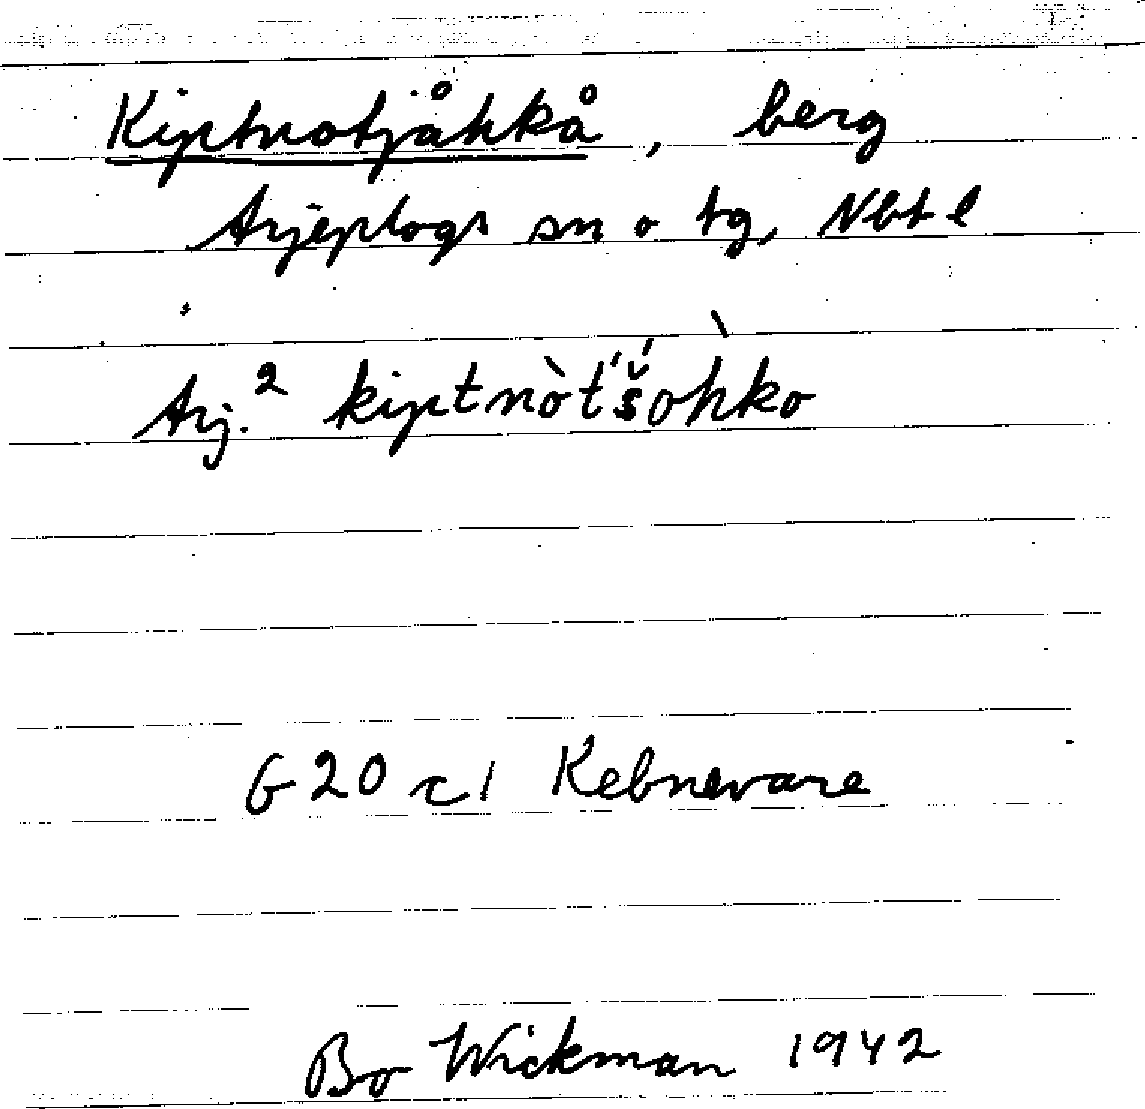 Kiptnotjåhkå, berg
Arjeplogs sn o tg, Nbt l
Arj.² kiptnòt́'š́oh̀ko
G20 c1 Kebnevare
Bo Wickman 1942